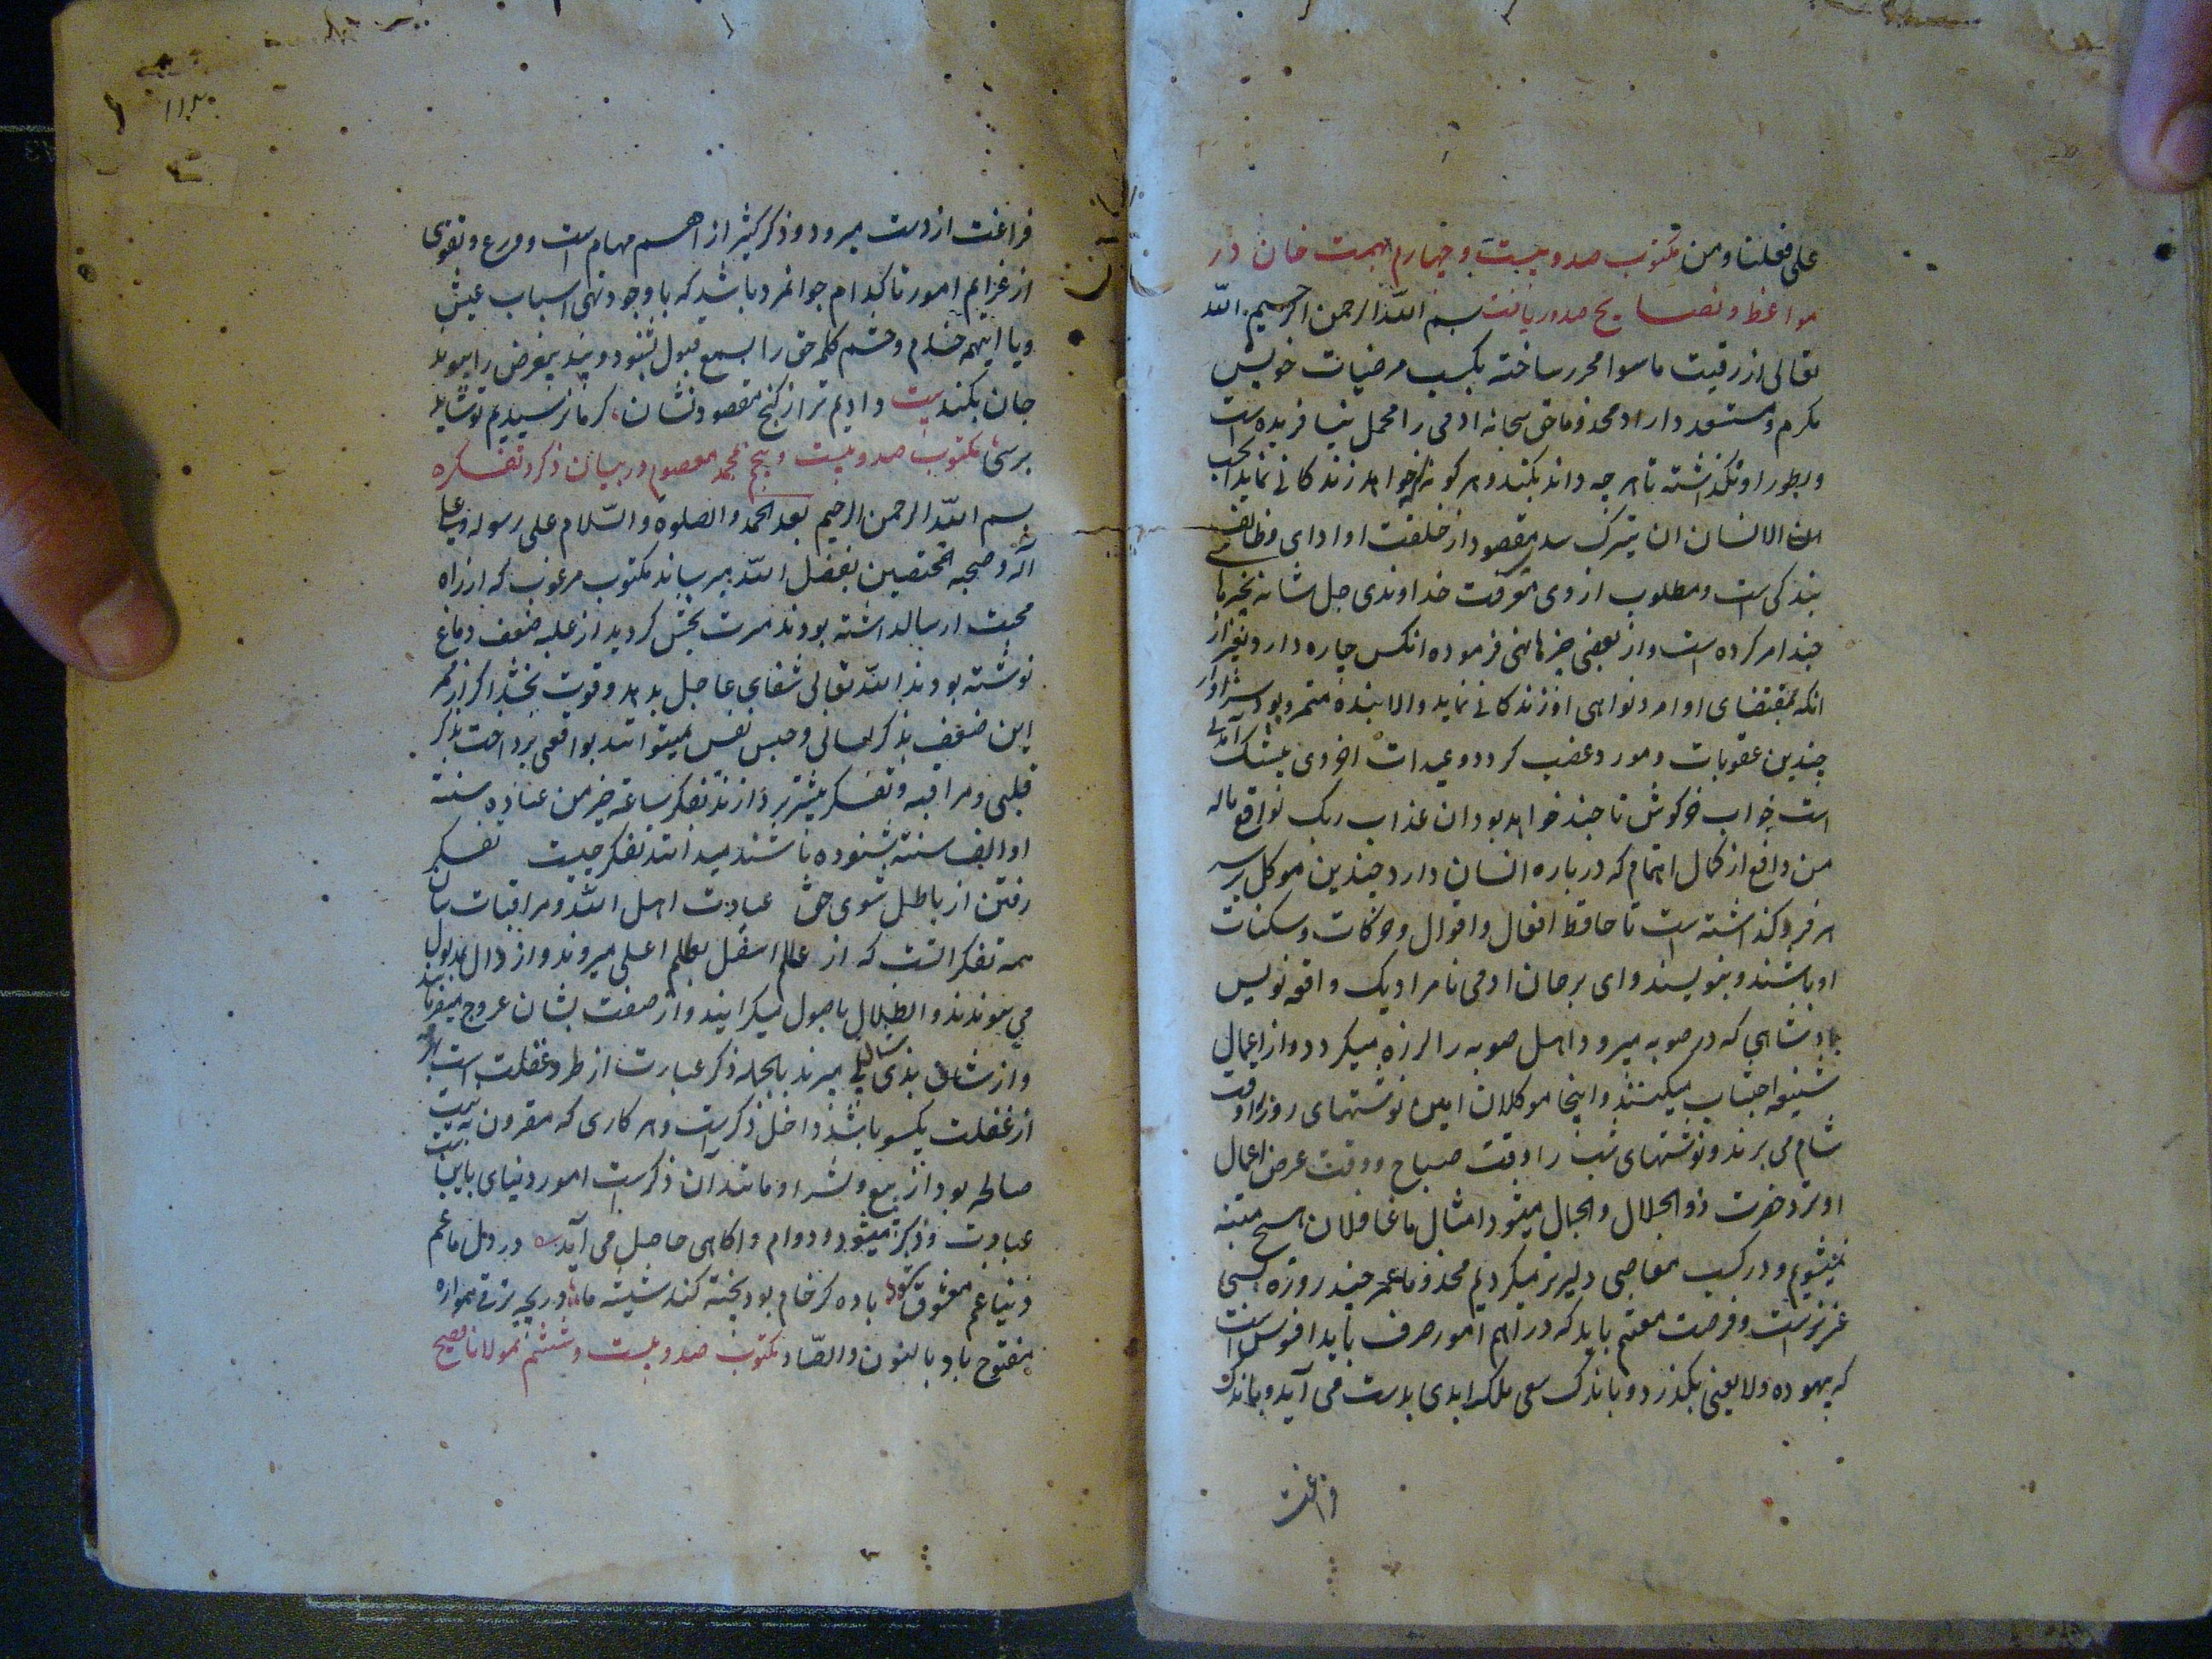 علی فعلنا و من مکتوب صد و بیست و چهارم بهمت خان در
مواعظ و نصایح صدور یافت بسم الله الرحمن الرحیم الله
تعالی از رقیت ماسوا محرر ساخته بکسب مرضیات خویش
مکرم و مستعد داراد مخدوما حق سبحانه ادمی را مهمل نیافریده است
و بطور او نگذاشته تا هر چه داند بکند و هر کونه خواهد زندکانی نماید ایحسب
الانسان ان یترک سدی مقصود از خلقت او ادای وظائف
بندکی است و مطلوب از وی معرفت خداوندی جل شانه بچیزها
چند امر کرده است و از بعضی چیزها نهی فرموده انکس چاره دارد بغیر از
انکه بمقتضای اوامر و نواهی او زندکانی نماید والا بنده متمرد بود سزاوار
چندین عقوبات و مورد غضب کردد و وعیدات اخروی بیشک آمدنی
است خواب خرکوش تا چند خواهد بود ان عذاب ربک لواقع ماله
من دافع از کمال اهتمام که درباره انسان دارد چندین موکل بر سر
هر فرد کذاشته است تا حافظ افعال و اقوال و حرکات و سکنات
او باشند و بنویسند وای بر جان ادمی نامراد یک واقعه نویس
بادشاهی که در صوبه میرود اهل صوبه را لرزه میکیرد و از اعمال
شنیعه اجتناب میکنند و اینجا موکلان امین نوشتهای روز را وقت
شام می برند و نوشتهای شب را وقت صباح و وقت عرض اعمال
او نزد حضرت ذوالجلال والجمال میشود امثال ما غافلان هیچ متنبه
نمیشویم و در کسب معاصی دلیرتر میکردیم مخدوما عمر چند روزه بسی
عزیز است و فرصت مغتنم باید که در اهم امور صرف یابد افسوس است
که بیهوده و لایعنی بکذرد و باندک سعی ملک ابدی بدست می آید و باندک
فراغت
فراغت از دست میرود و ذکر کثیر از اهم مهام است و ورع و تقوی
از عزایم امور تا کدام جوانمرد باشد که با وجود تهی اسباب عیش
و با اینهمه خدم و حشم کلمه حق را بسمع قبول بشنود و پند بیغرض را پیوند
جان بکند بیت دادیم ترا ز کنج مقصود نشان، کر ما نرسیدیم تو شاید
برسی مکتوب صد و بیست و پنجم محمد معصوم در بیان ذکر و تفکره
بسم الله الرحمن الرحیم بعد الحمد والصلوة والسلام علی رسوله و علی
آله و صحبه المختصین بفضل الله میرساند مکتوب مرغوب که از راه
محبت ارسالداشته بودند مسرت بخش کردید از غلبه ضعف دماغ
نوشته بودند الله تعالی شفای عاجل بدهد و قوت بخشد اکر از ممر
این ضعف بذکر لسانی و حبس نفس میتوانند بواقعی پرداخت بذکر
قلبی و مراقبه و تفکر بیشتر پردازند تفکر ساعة خیر من عبادة سنة
او الف سنة شنوده باشند میدانند تفکر چیست تفکر
رفتن از باطل سوی حق عبادت اهل الله و مراقبات شان
همه تفکر است که از عالم اسفل بعالم اعلی میروند و از دال بمدلول
می پیوندند و از ظلال باصول میکرایند و از صفت بشان عروج میفرمایند
و از شان بذی شان پی میبرند بالجمله ذکر عبارت از طرد غفلت است هر چه
از غفلت یکسو باشد داخل ذکر است و هر کاری که مقرون به نیت
صالحه بود از بیع و شرا و مانند آن ذکر است امور دنیای باین نیت
عبادت و ذکر میشود و دوام واکاهی حاصل می آید ه در دل ما غم
دنیا غم معشوق شود باده کر خام بود پخته کند شیشه ما دریچه ترقی همواره
مفتوح باد بالنون والصاد مکتوب صد و بیست و ششم بمولانا فصیح